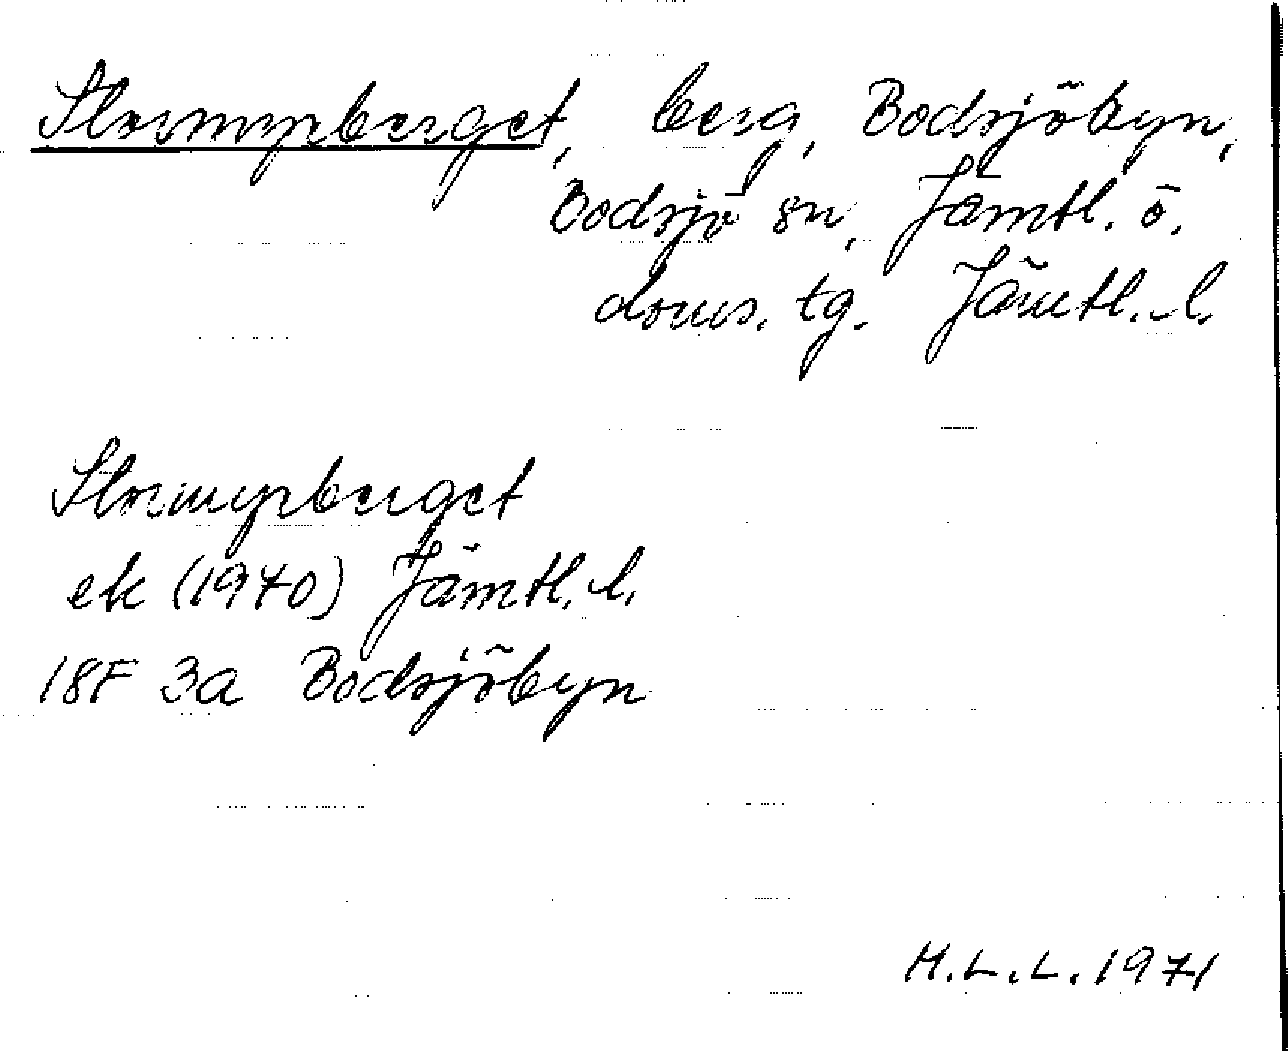 Stormyrberget, berg, Bodsjöbyn,
Bodsjö sn, Jämtl. ö.
doms. tg. Jämtl. l.
Stormyrberget
ek (1970) Jämtl. l.
18F 3a Bodsjöbyn
H.L.L. 1971